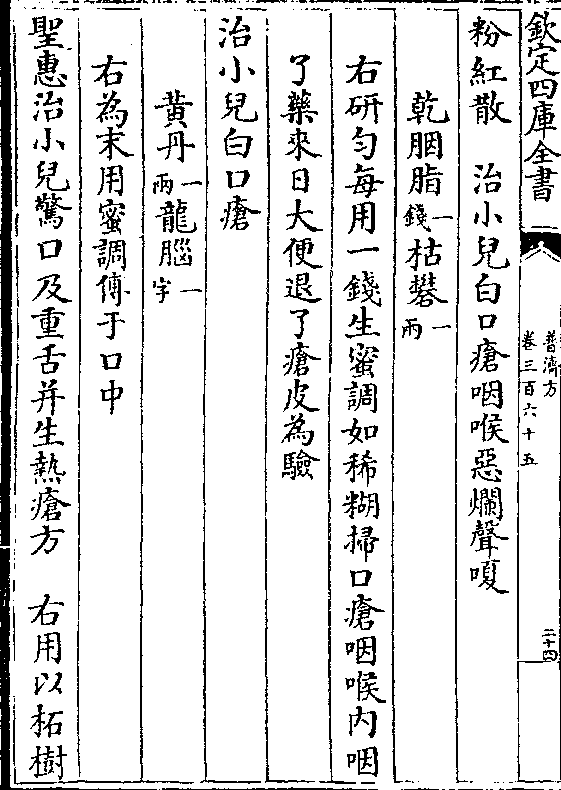 欽定四庫全書
普濟方
卷三百六十五
二十四
粉紅散　治小兒白口瘡咽喉惡爛聲嗄
乾胭脂一錢枯礬一兩
右研勻每用一錢生蜜調如稀糊掃口瘡咽喉內咽
了藥來日大便退了瘡皮為驗
治小兒白口瘡
黃丹一兩龍腦一字
右為末用蜜調傅于口中
聖惠治小兒驚口及重舌并生熱瘡方　右用以柘樹